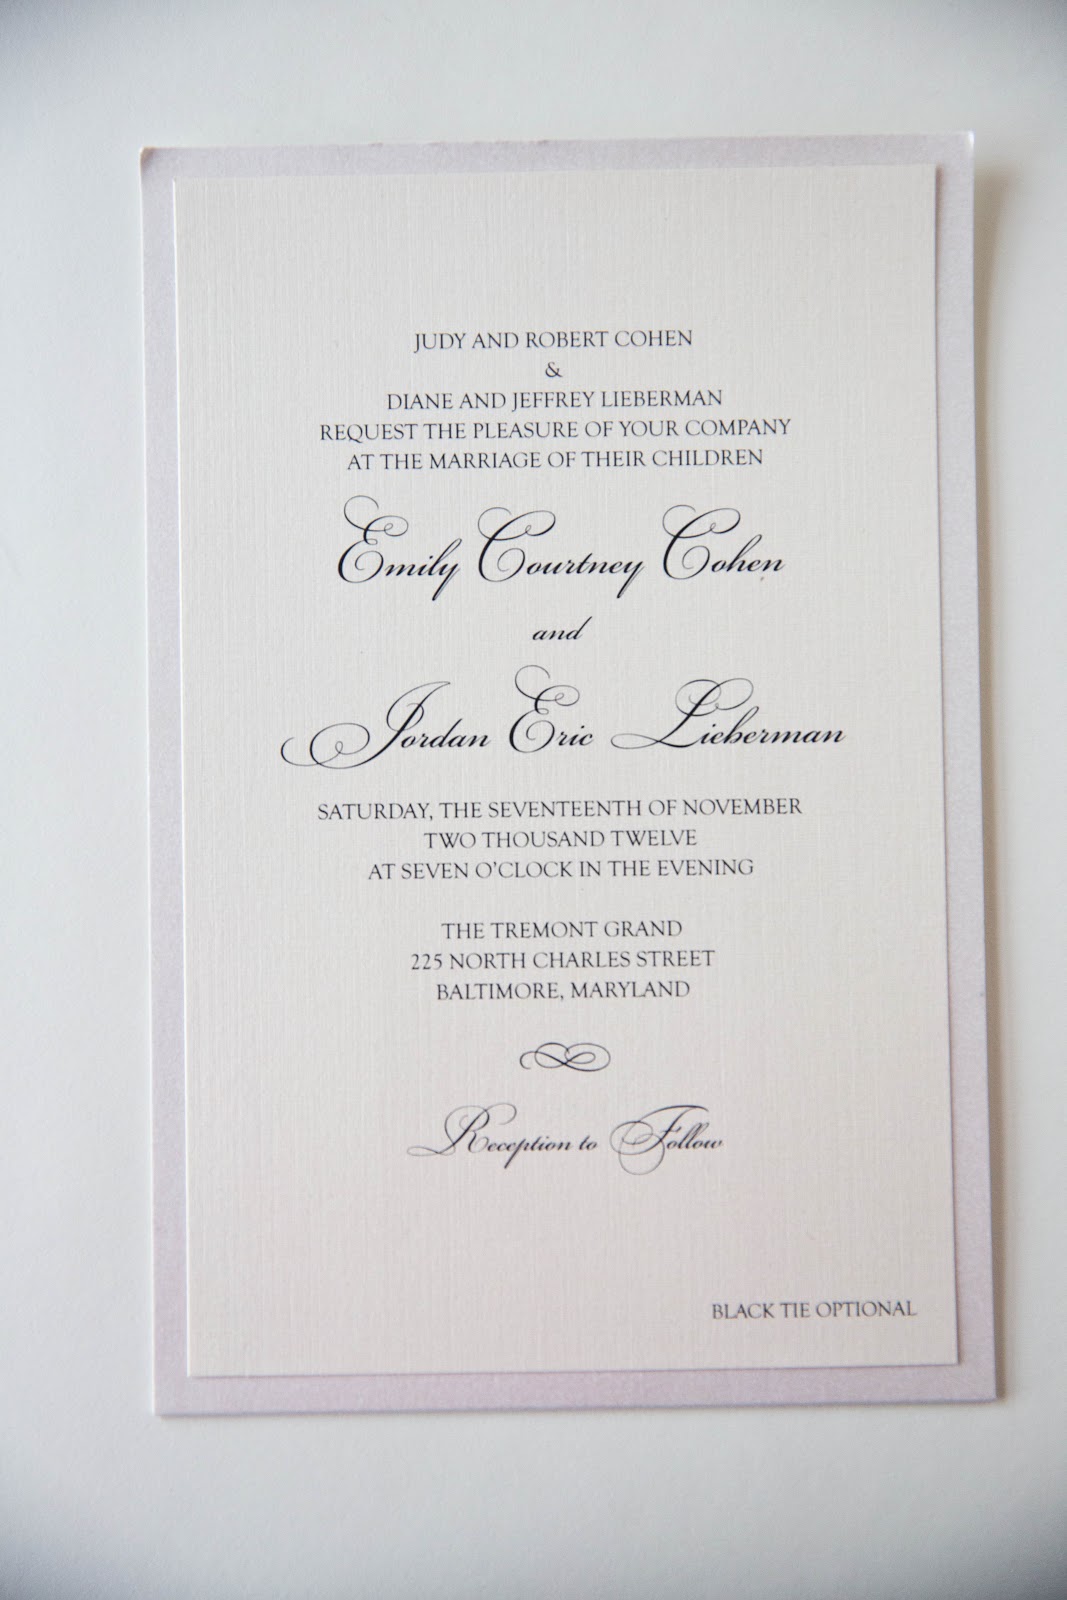 JUDY AND ROBERT COHEN
&
DIANE AND JEFFREY LIEBERMAN
REQUEST THE PLEASURE OF YOUR COMPANY
AT THE MARRIAGE OF THEIR CHILDREN
Emily Courtney Cohen
and
Jordan Eric Lieberman
SATURDAY, THE SEVENTEENTH OF NOVEMBER
TWO THOUSAND TWELVE
AT SEVEN O'CLOCK IN THE EVENING
THE TREMONT GRAND
225 NORTH CHARLES STREET
BALTIMORE, MARYLAND
Reception to Follow
BLACK TIE OPTIONAL